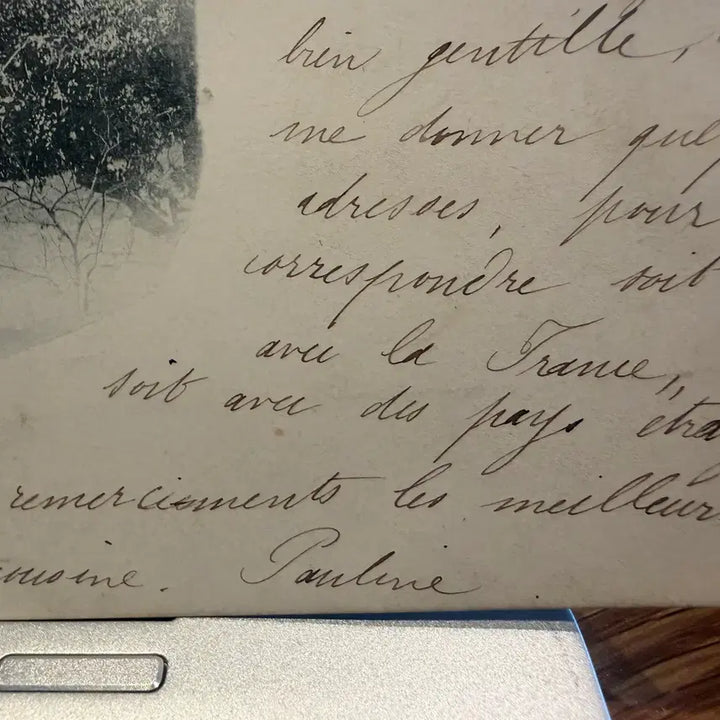 bien gentille,
me donner quelq
adresses, pour
correspondre soit
avec la France,
soit avec des pays étra
remerciements les meilleur
cousine. Pauline